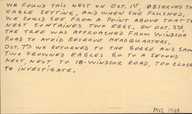 WE FOUND THIS NEST ON OCT. 1ST OBSERVED THE
EAGLE SITTING, AND WHEN SHE FLUSHED
WE COULD SEE FROM A POINT ABOVE THAT THE
NEST CONTAINED TWO EGGS, ON OCT. 3RD,
THE TREE WAS APPROACHED FROM WINDSOR
ROAD TO AVOID RESERVE HEADQUARTERS.
OCT. 7TH WE RETURNED TO THE GORGE AND SAW
TWO CROWNED EAGLES GO TO A SECOND
NEST, NEXT TO 18 WINDSOR ROAD, TOO CLOSE
TO INVESTIGATE.